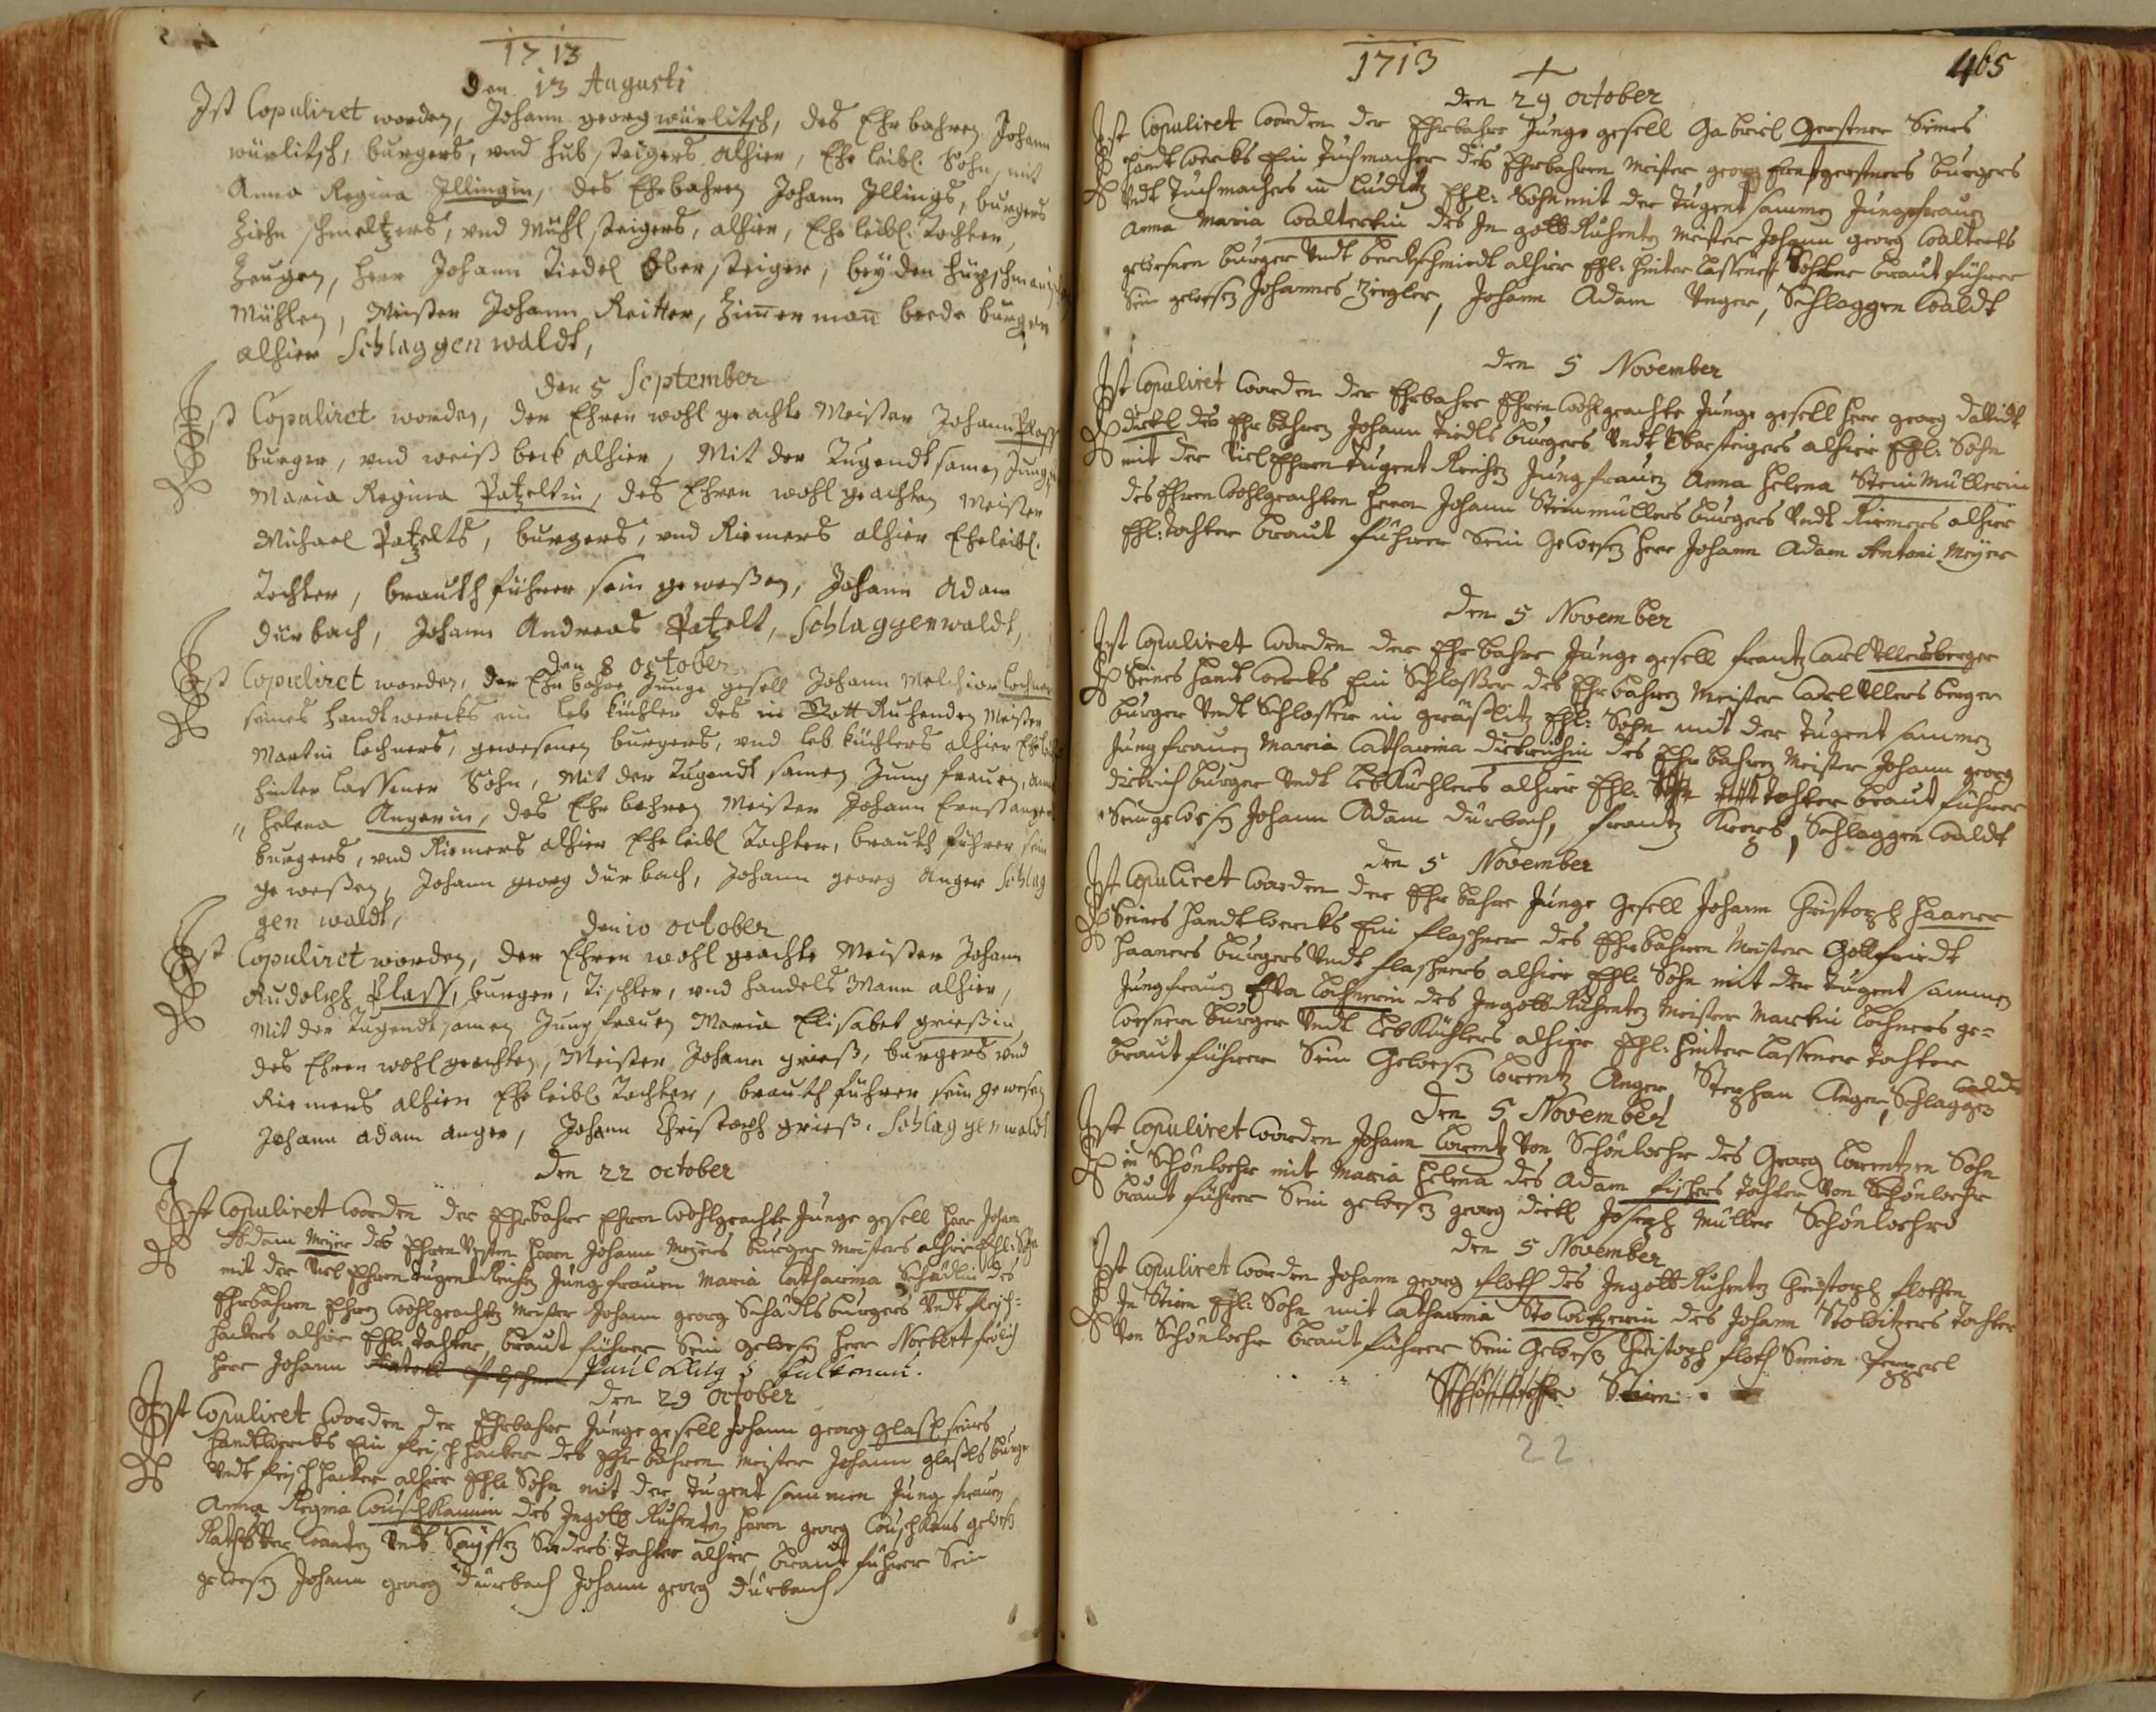 1713
den 13 Augusti
Ist Copuliret worden, Johann georg würlitsch, des Ehrbahren Johann
würlitsch, burgers, und hub steigers alhier, Ehe leibl. Sohn, mit
Anna Regina Illingin, des Ehrbahren Johann Illings, burgers
Ziehn schmeltzers, und Mühl steigers, alhier, Ehe leibl. Tochter,
Zeugen, herr Johann Tiedel Obersteiger, beÿ den
Mühlen, Meister Johann Reitter, Zimmermañ beede burger
alhier Schlaggenwaldt,
den 5 September
Ist Copuliret worden, der Ehren wohl geachte Meister Johann Plass
burger, und weiß beck alhier, Mit der Tugendtsamen Jungfr
Maria Regina Patzeltin, des Ehren wohl geachten Meister
Michael Patzelts, burgers, und Riemers alhier Eheleibl.
Tochter, brauth führer sein geweßen, Johann Adam
dürbach, Johann Andreas Patzelt, Schlaggenwaldt,
den 8 october
Ist Copuliret worden, der Ehrbahre Junge gesell Johann Melchior Lochner
seines handtwercks ein leb küchler des in Gott Ruhenden Meister
Martin lochners, gewesenen burgers, und leb küchlers alhier Eheleibl
hinter lassener Sohn, Mit der Tugendt samen Jung frauen, anna
helena Angerin, des Ehrbahren Meister Johann Ernst anger
burgers, und Riemers alhier Ehe leibl Tochter, brauth führer sein
geweßen, Johann georg dürbach, Johann georg Anger Schlag
gen waldt,
den 10 october
Ist Copuliret worden, der Ehren wohl geachte Meister Johann
Rudolph Plass, burger, Tischler, und handels Mann alhier,
Mit der Tugendtsamen Jungfrauen Maria Elisabet grießin,
des Ehren wohl geachten, Meister Johann grieß, burgers und
Riemers alhier Ehe leibl. Tochter, brauth führer sein gewesen
Johann adam anger, Johann Christoph grieß. Schlaggenwaldt
den 22 october
Ist Copuliret worden der Ehrbahre Ehren wohlgeachte Junge gesell herr Johann
Adam Meÿer des Ehren Vesten herrn Johann Meÿers burger Meisters alhier Ehl: Sohn
mit der Viel Ehren tugent Reichen Jungfrauen Maria Catharina Schädlin des
Ehrbahren Ehren wohlgeachten Meister Johann georg Schädls burgers Undt fleisch-
hackers alhier Ehl: tochter, braut führer Sein gewesen herr Norbert
herr Johann Paul
den 29 october
Ist Copuliret worden der Ehrbahre Junge gesell Johann georg glaßl seines
handtwercks Ein fleischhacker des Ehrbahren Meister Johann glaßls burger
Undt fleischhacker alhier Ehl: Sohn mit der tugent sammen Jung frauen
Anna Regina des In gott Ruhenten herrn georg gewesen
Undt Seÿffen Sieders tochter alhier, braut führer Sein
gewesen Johann georg dürbach Johann georg dürbach
1713
465
den 29 october
Ist Copuliret worden der Ehrbahre Junge gesell Gabriel Gerstner Seines
handt wercks Ein tuchmacher des Ehrbahren Meister georg Ernst gerstners burgers
Undt tuchmachers in Ehl: Sohn mit der tugent sammen Jungfrauen
Anna Maria Walterbin des In gott Ruhenten Meister Johann georg
gewesenen burger Undt alhier Ehl: hinterlassene tochter braut führer
Sein gewesen Johannes Ziegler, Johann Adam Unger, Schlaggen waldt
den 5 November
Ist Copuliret worden der Ehrbahre Ehren wohlgeachte Junge gesell herr georg
diekl des Ehrbahren Johann tiedls burgers Undt Obersteigers alhier Ehl: Sohn
mit der Viel Ehren tugent Reichen Jungfrauen Anna Helena Steinmüllerin
des Ehren wohlgeachten herrn Johann Steinmüllers burgers Undt Riemers alhier
Ehl: tochter braut führer Sein Gewesen herr Johann Adam Antoni Meÿer
den 5 November
Ist Copuliret worden der Ehrbahre Junge gesell frantz Carl Ullersberger
Seines handt wercks Ein Schlosser des Ehrbahren Meister Carl Ullersberger
burger Undt Schlosser in gräßlitz Ehl: Sohn mit der tugent sammen
Jungfrauen Maria Catharina dietrichin des Ehrbahren Meister Johann georg
dietrich burger Undt Lebküchlers alhier Ehl: tochter braut führer
Sein gewesen Johann Adam dürbach, frantz, Schlaggen waldt
den 5 November
Ist Copuliret worden der Ehrbahre Junge Gesell Johann Christoph haaner
Seines handtwercks Ein flaschner des Ehrbahren Meister Gottfriedt
haaners burgers Undt flaschners alhier Ehl: Sohn mit der tugent sammen
Jungfrauen Eva Lochnerin des In gott Ruhenten Meister Martin Lochners ge-
wesenen burger Undt Lebküchlers alhier Ehl: hinterlassener tochter
braut führer Sein Gewesen Lorentz Anger, Stephan Anger, Schlaggen waldt
den 5 November
Ist Copuliret worden Johann Lorentz Von Schönwehr des Georg Lorentzen Sohn
in Schönwehr mit Maria Helena des Adam fischers tochter Von Schönwehr
braut führer Sein gewesen georg Joseph Müller Schönwehr
den 5 November
Ist Copuliret worden Johann georg floth des In gott Ruhenten Christoph flothen
In Stein Ehl: Sohn mit Catharina Stowitzerin des Johann Stowitzers tochter
Von Schönwehr braut führer Sein Gewesen Christoph floth Simon
Stein
22.